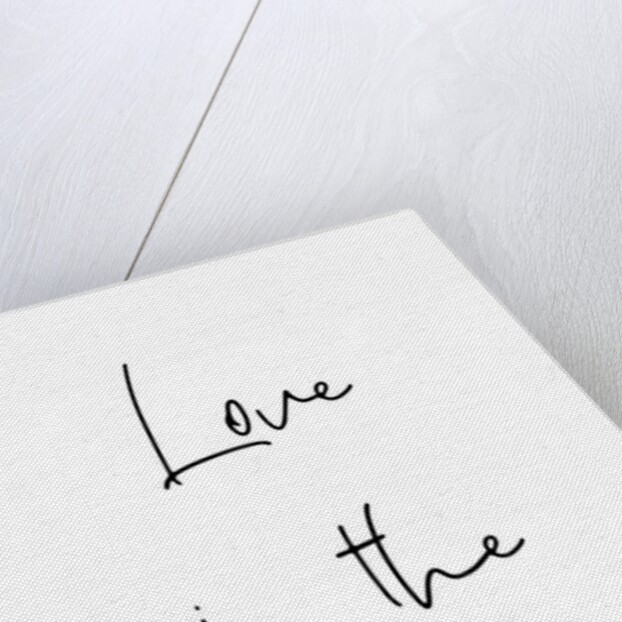 Love
the